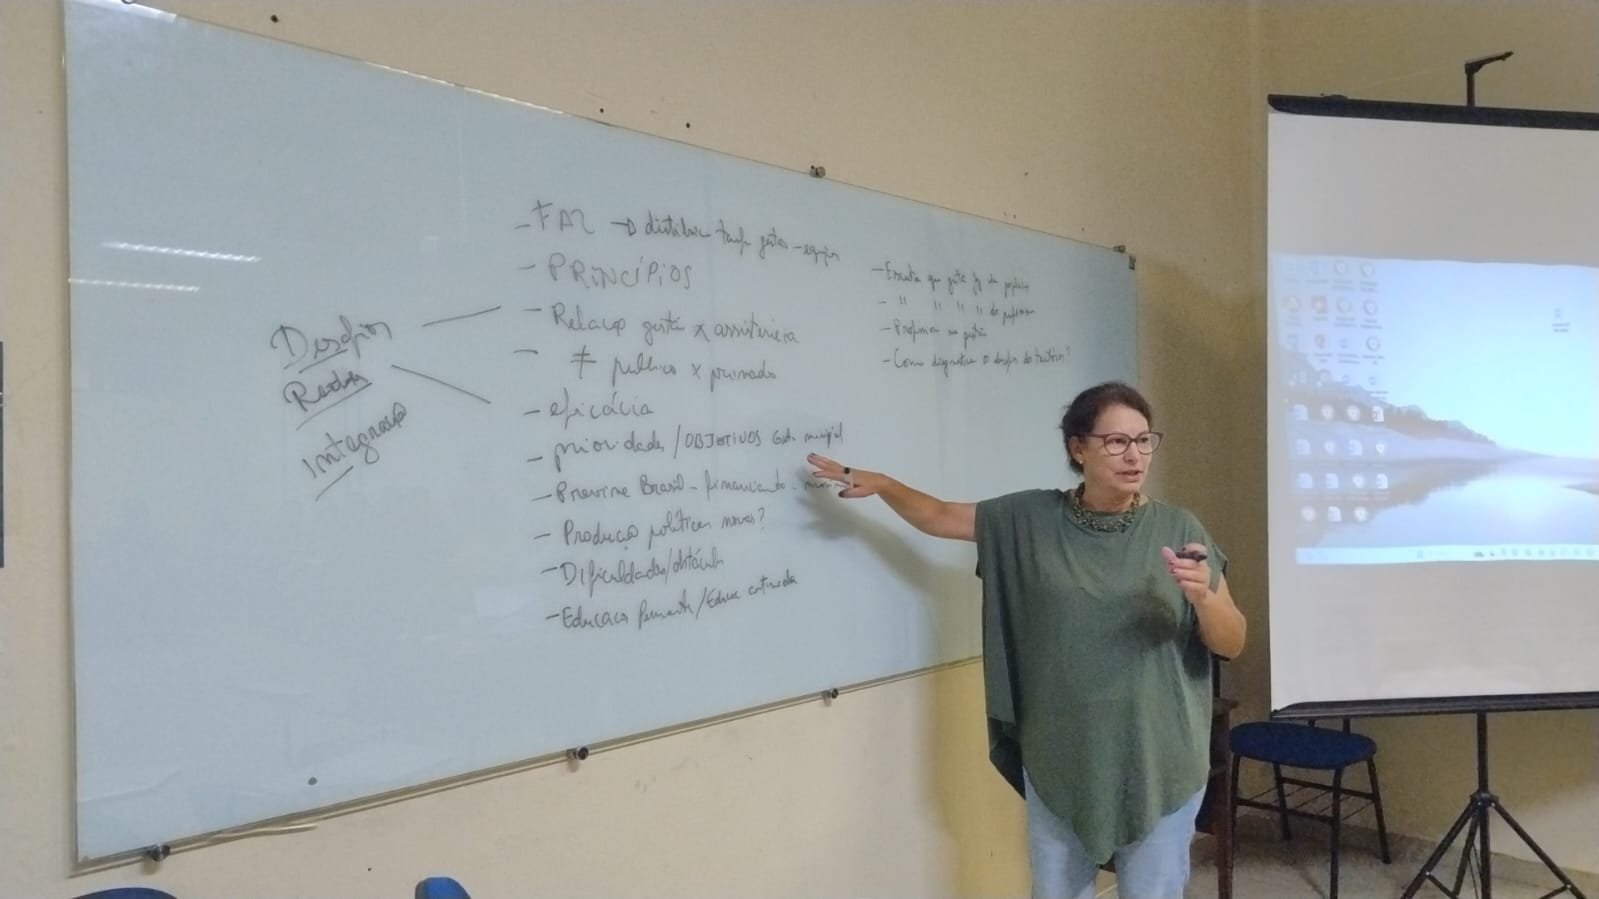 Desafios
Redes
Integração
- FAZ → distribuir gestão - equipe
- PRINCÍPIOS
- Relação gestão x assistência
- ≠ público x privado
- eficácia
- prioridades/OBJETIVOS Gestão municipal
- Previne Brasil - financiamento -
- Produção políticas novas?
- Dificuldades/obstáculos
- Educação Permanente/Educ continuada
- Escuta que gestão faz da população
- " " " " do profissional
- Profissional na gestão
- Como diagnosticar o desafio do território?